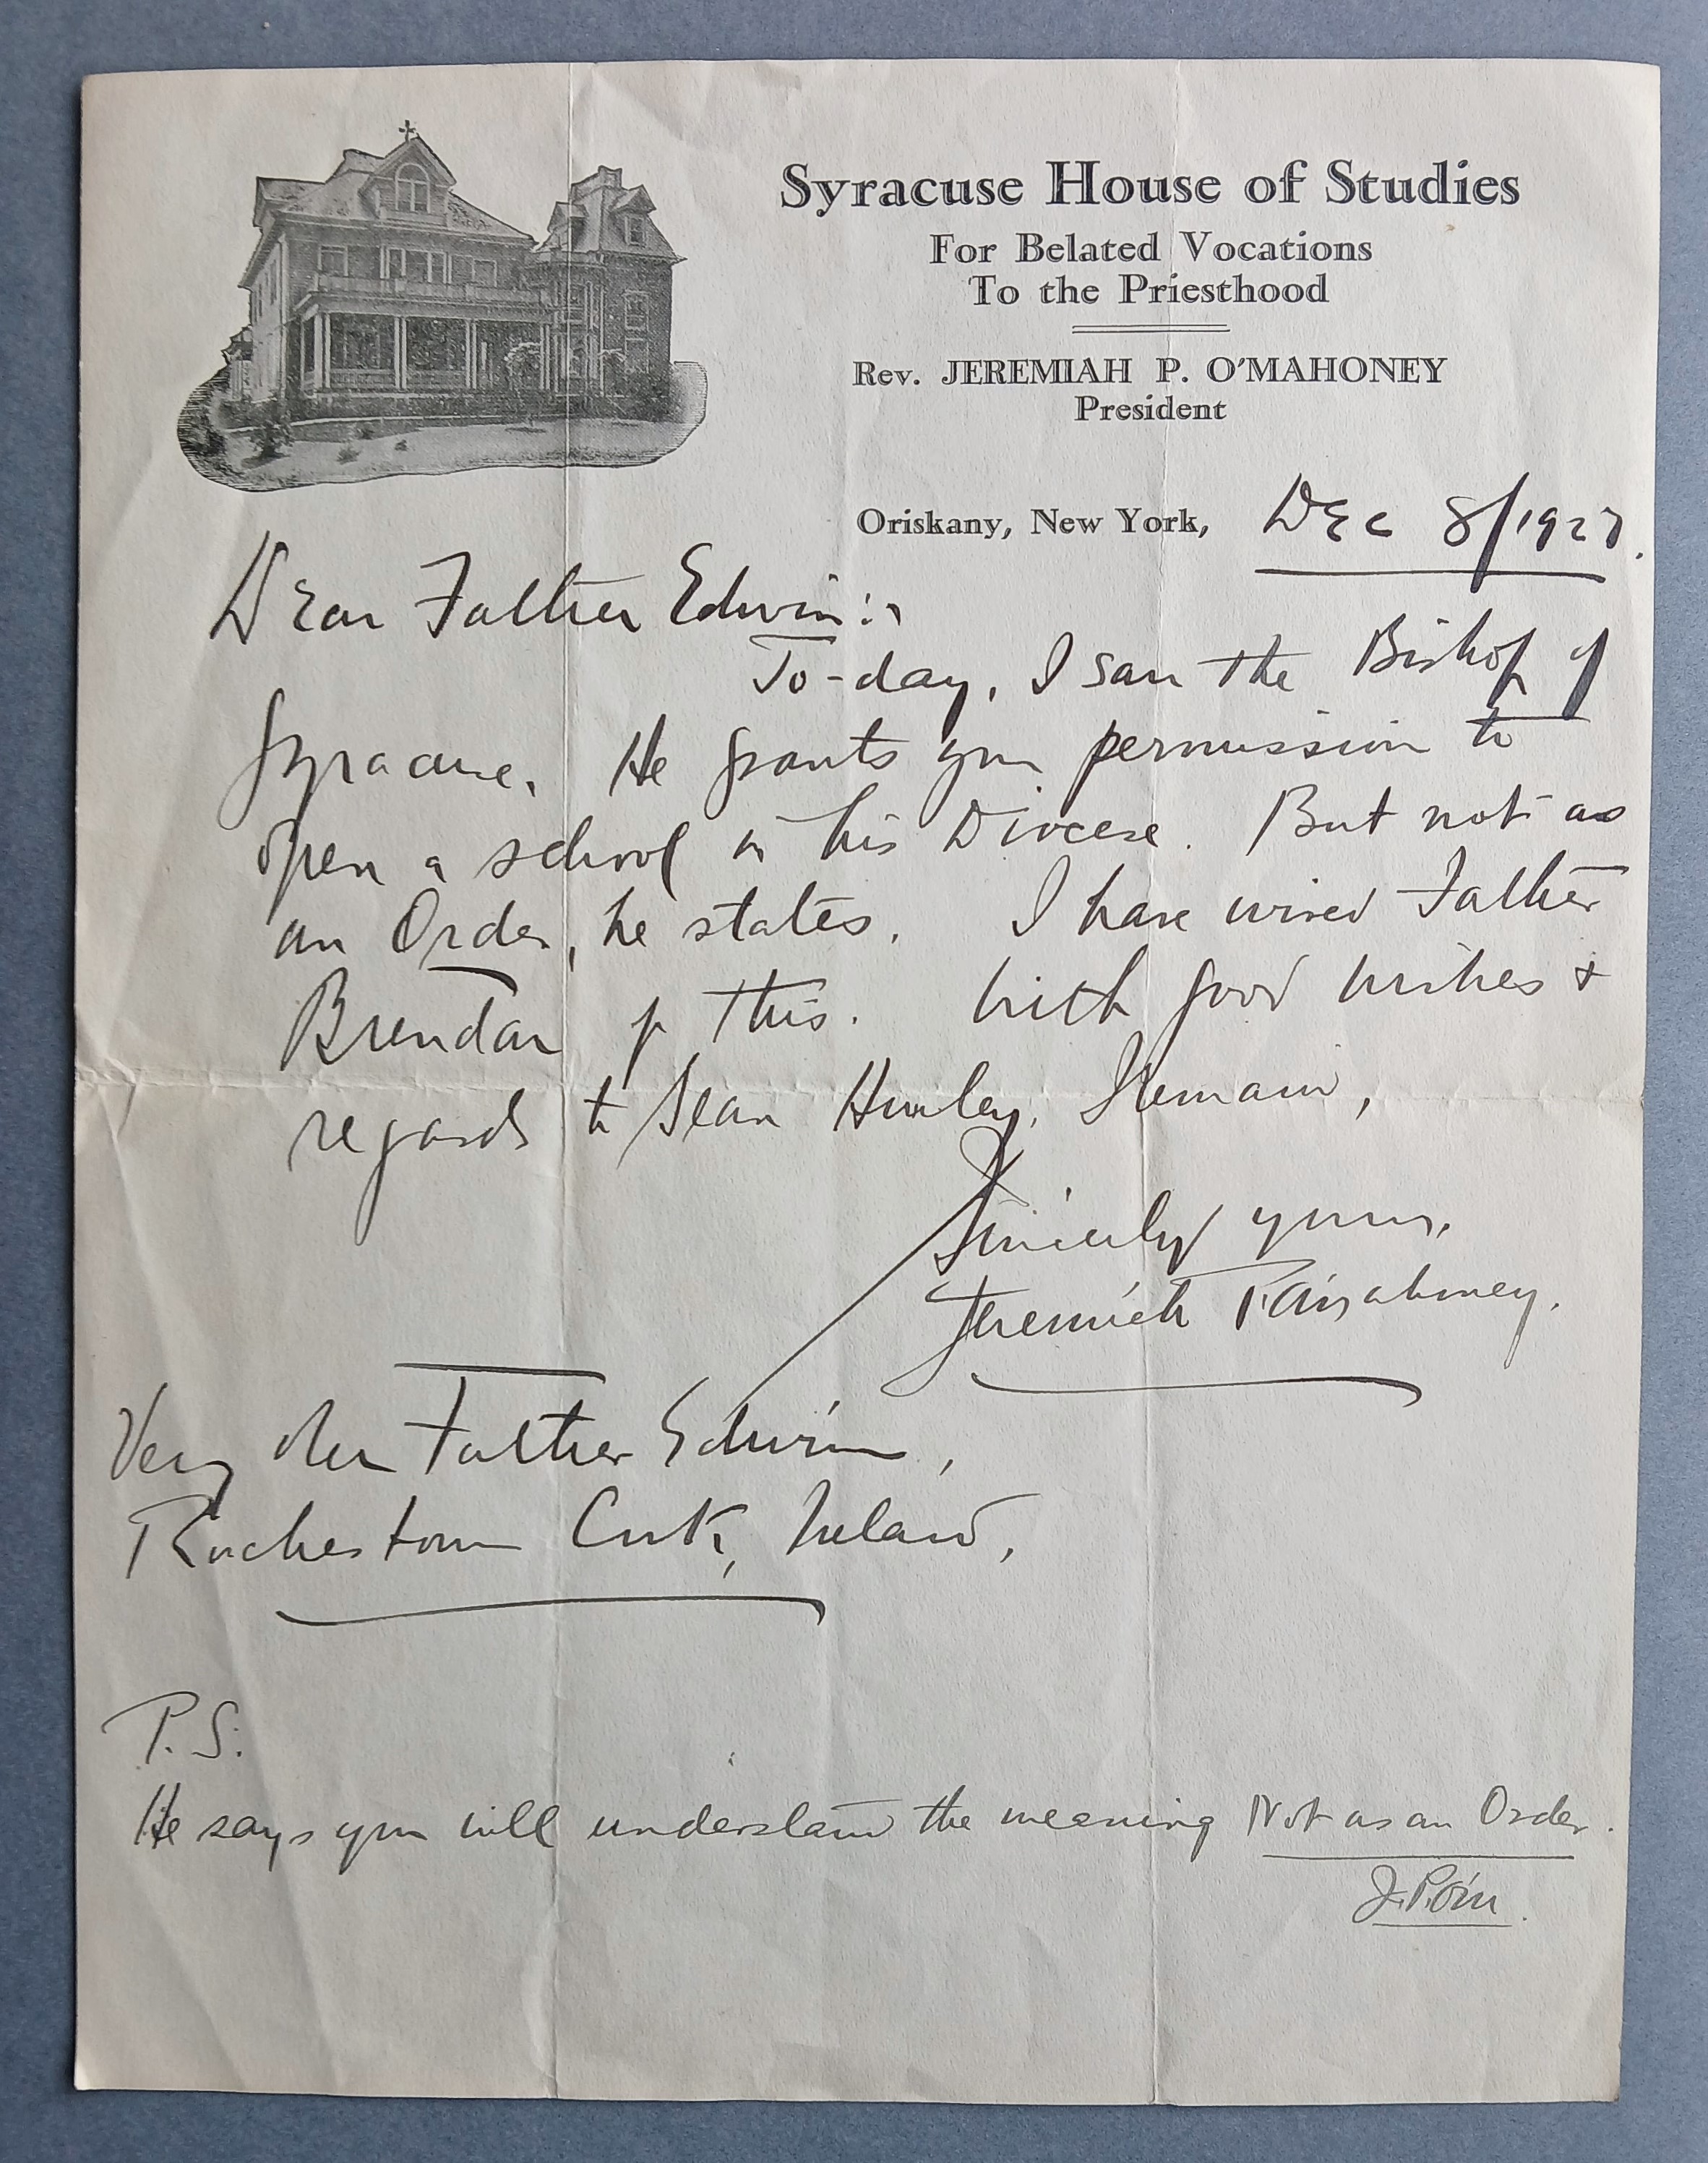 Syracuse House of Studies
For Belated Vocations
To the Priesthood
Rev. JEREMIAH P. O'MAHONEY
President
Oriskany, New York, Dec 8/1927.
Dear Father Edwin:-
To-day, I saw the Bishop of
Syracuse. He grants you permission to
open a school in his Diocese. But not as
an Order, he states. I have wired Father
Brendan of this. With good wishes &
regards to Sean Hurley, I remain,
Sincerely yours,
Jeremiah P. O'Mahoney.
Very Rev Father Edwin,
Rochestown Cork, Ireland,
P.S.
He says you will understand the meaning Not as an Order.
J.P.O'M.